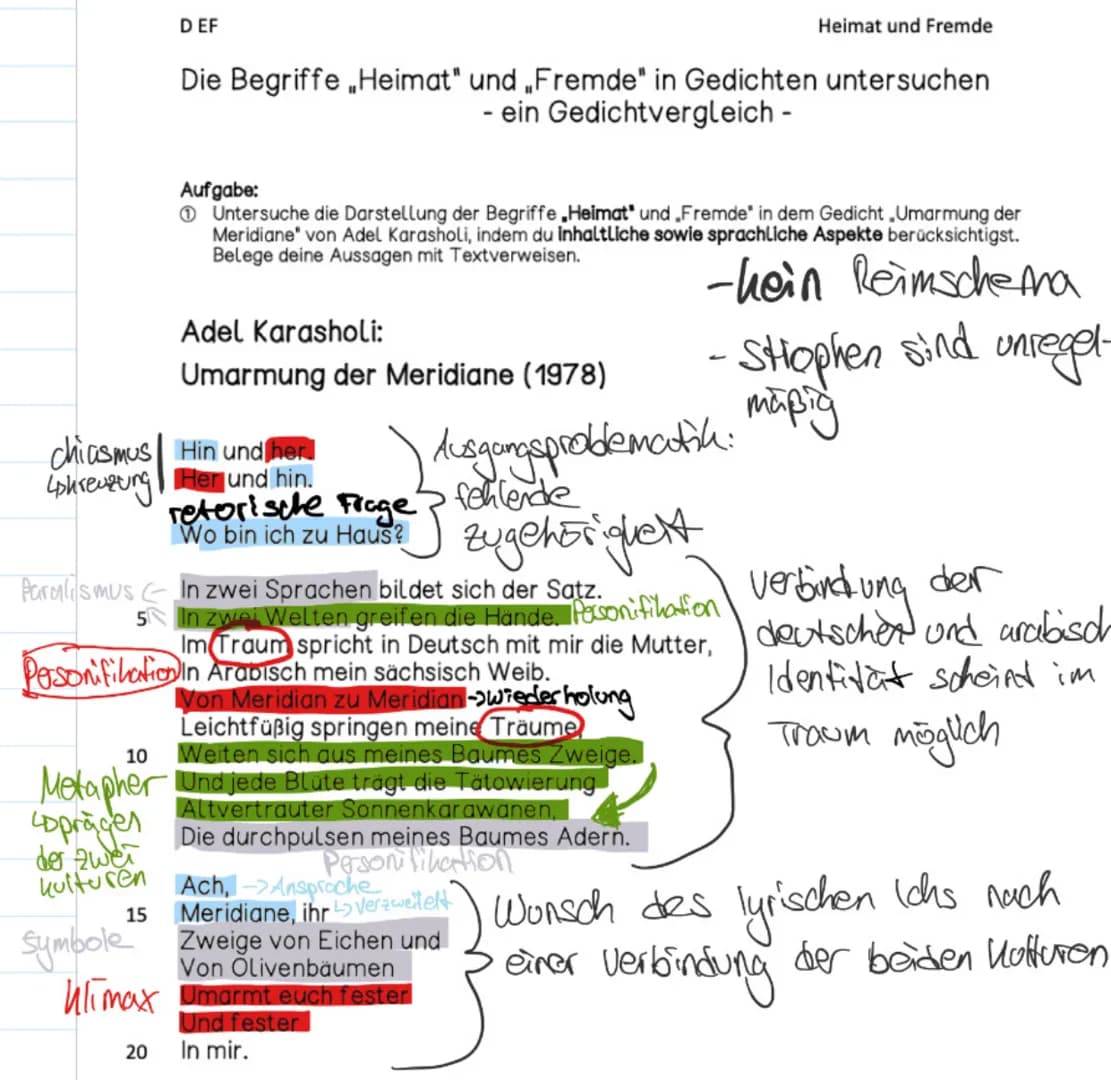 D EF
Heimat und Fremde
Die Begriffe „Heimat" und „Fremde" in Gedichten untersuchen
- ein Gedichtvergleich -
Aufgabe:
① Untersuche die Darstellung der Begriffe „Heimat" und „Fremde" in dem Gedicht „Umarmung der
Meridiane" von Adel Karasholi, indem du inhaltliche sowie sprachliche Aspekte berücksichtigst.
Belege deine Aussagen mit Textverweisen.
-kein Reimschema
- Strophen sind unregel-
mäßig
Adel Karasholi:
Umarmung der Meridiane (1978)
chiasmus
↳kreuzung
Hin und her.
Her und hin.
retorische Frage
Wo bin ich zu Haus?
Ausgangsproblematik:
fehlende
zugehörigkeit
Paralismus ←
In zwei Sprachen bildet sich der Satz.
5 In zwei Welten greifen die Hände. Personifikation
Im Traum spricht in Deutsch mit mir die Mutter,
Personifikation In Arabisch mein sächsisch Weib.
Von Meridian zu Meridian →wiederholung
Leichtfüßig springen meine Träume,
10 Weiten sich aus meines Baumes Zweige.
Und jede Blüte trägt die Tätowierung
Altvertrauter Sonnenkarawanen,
Die durchpulsen meines Baumes Adern.
Personifikation
verbindung der
deutschen und arabisch
Identität scheint im
Traum möglich
Metapher
↳prägen
der zwei
kulturen
Ach, →Ansprache
15 Meridiane, ihr ↳verzweifelt
Symbole
Zweige von Eichen und
Von Olivenbäumen
Klimax Umarmt euch fester
Und fester
20 In mir.
Wunsch des lyrischen Ichs nach
einer verbindung der beiden Kulturen